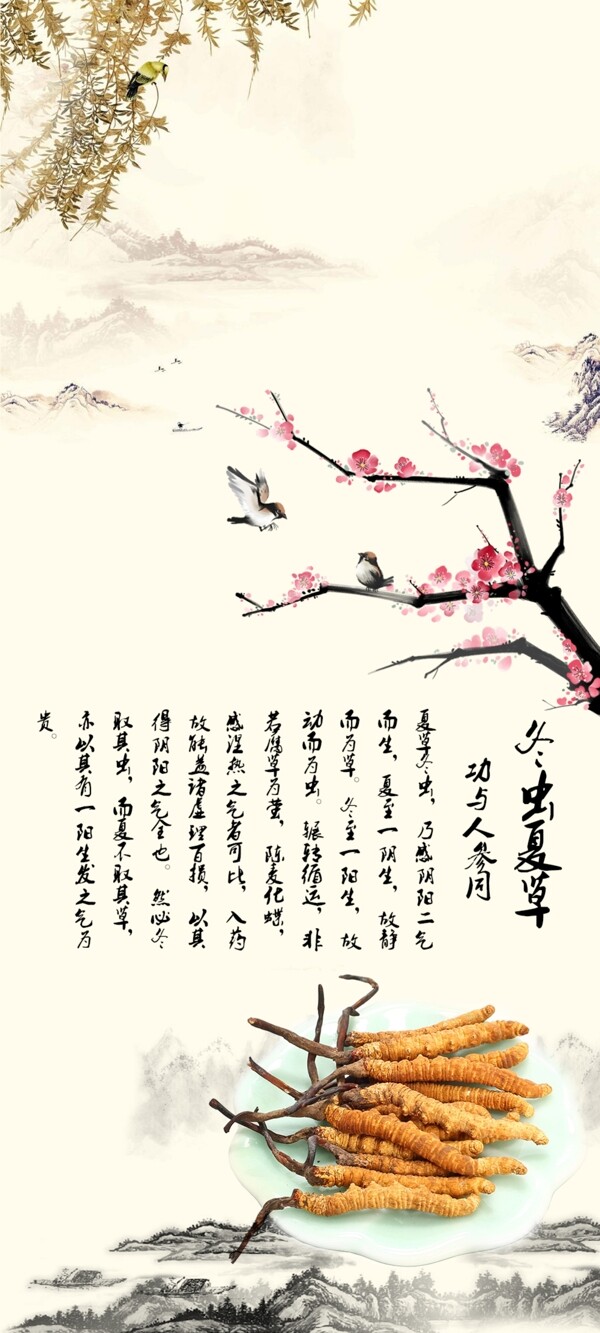 冬虫夏草
功与人参同
夏草冬虫，乃感阴阳二气
而生，夏至一阴生，故静
而为草。冬至一阳生，故
动而为虫。辗转循运，非
若腐草为萤，陈麦化蝶，
感湿热之气者可比，入药
故能益诸虚理百损，以其
得阴阳之气全也。然必冬
取其虫，而夏不取其草，
亦以其有一阳生发之气为
贵。